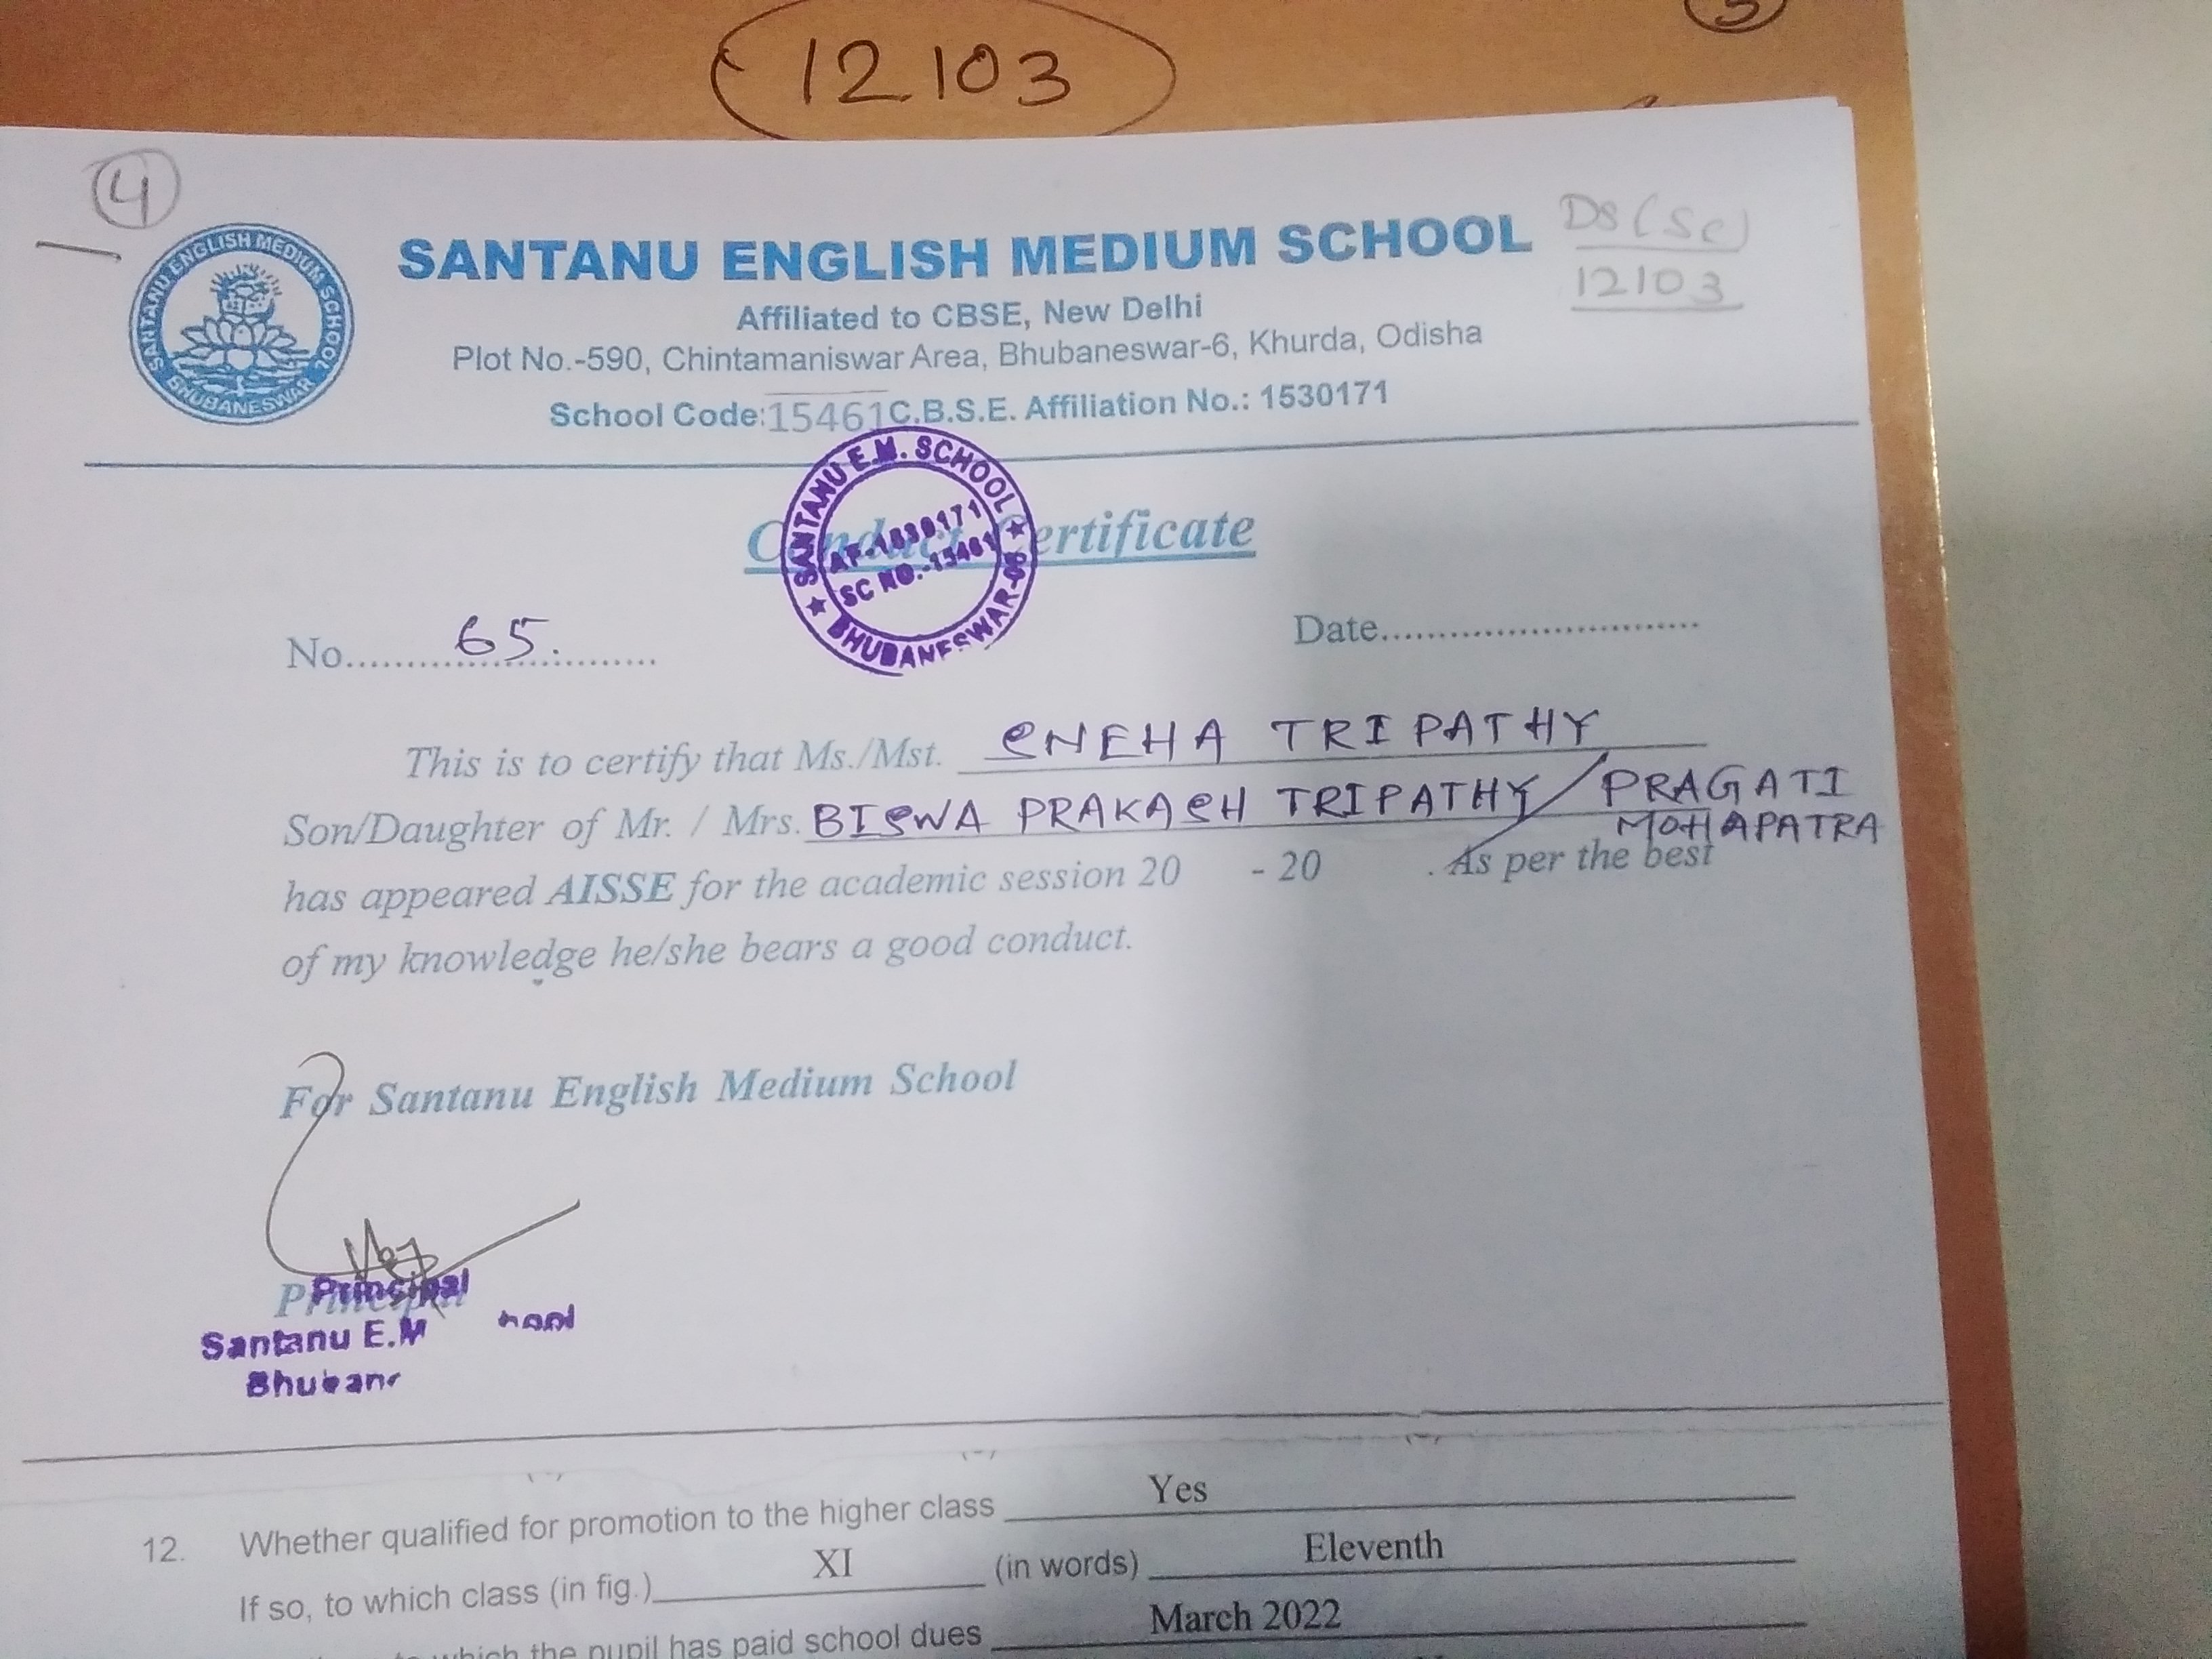 12103
4
DS(Sc)
12103
SANTANU ENGLISH MEDIUM SCHOOL
BHUBANESWAR
SANTANU ENGLISH MEDIUM SCHOOL
Affiliated to CBSE, New Delhi
Plot No.-590, Chintamaniswar Area, Bhubaneswar-6, Khurda, Odisha
School Code:15461 C.B.S.E. Affiliation No.: 1530171
Conduct Certificate
SANTANU E.M. SCHOOL
AF-1530171
SC NO.-15461
BHUBANESWAR-06
No. 65.
Date
This is to certify that Ms./Mst. SNEHA TRIPATHY
Son/Daughter of Mr. / Mrs. BISWA PRAKASH TRIPATHY/PRAGATI
MOHAPATRA
has appeared AISSE for the academic session 20 - 20 . As per the best
of my knowledge he/she bears a good conduct.
For Santanu English Medium School
Principal
Principal
Santanu E.M
Bhuban
12. Whether qualified for promotion to the higher class Yes
If so, to which class (in fig.) XI (in words) Eleventh
which the pupil has paid school dues March 2022